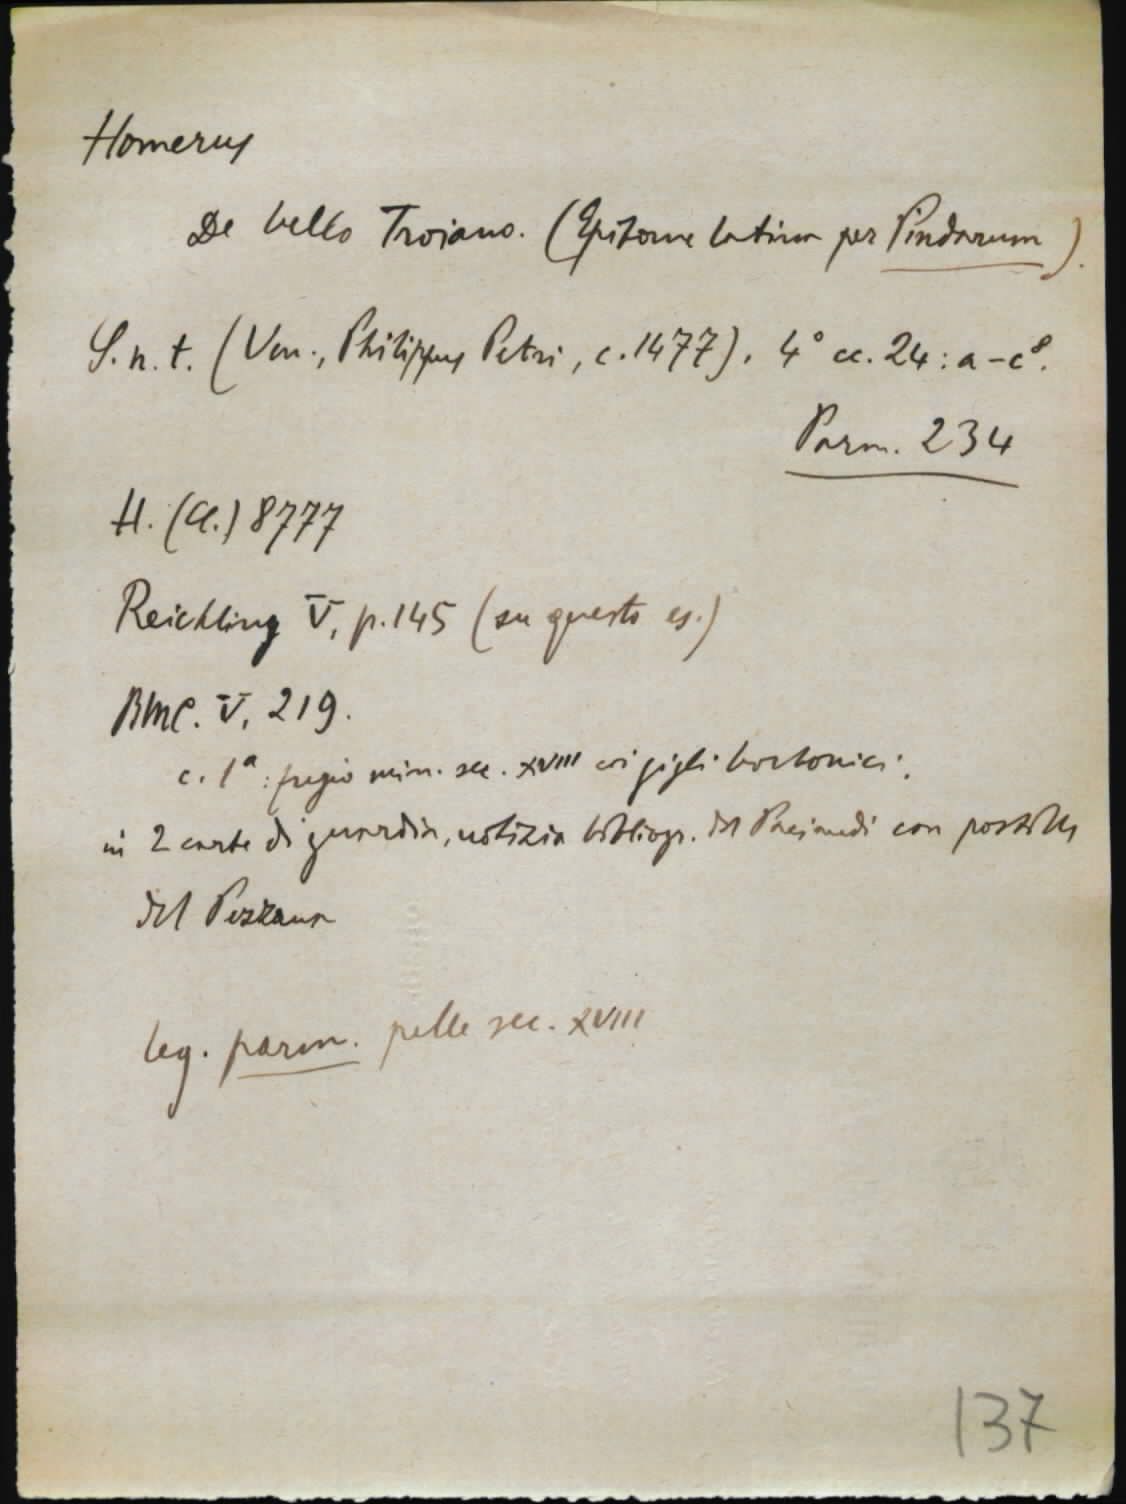 Homerus
De bello Troiano. (Epitome latina per Pindarum).
S. n. t. (Ven., Philippus Petri, c. 1477). 4° cc. 24: a-c⁸.
Parm. 234
H. (C.) 8777
Reichling V, p. 145 (su questo es.)
BMC. V, 219.
c. 1ª: fregio min. sec. XVIII coi gigli borbonici;
in 2 carte di guardia, notizia bibliogr. del Paciaudi con postille
del Pezzana
leg. parm. pelle sec. XVIII
137